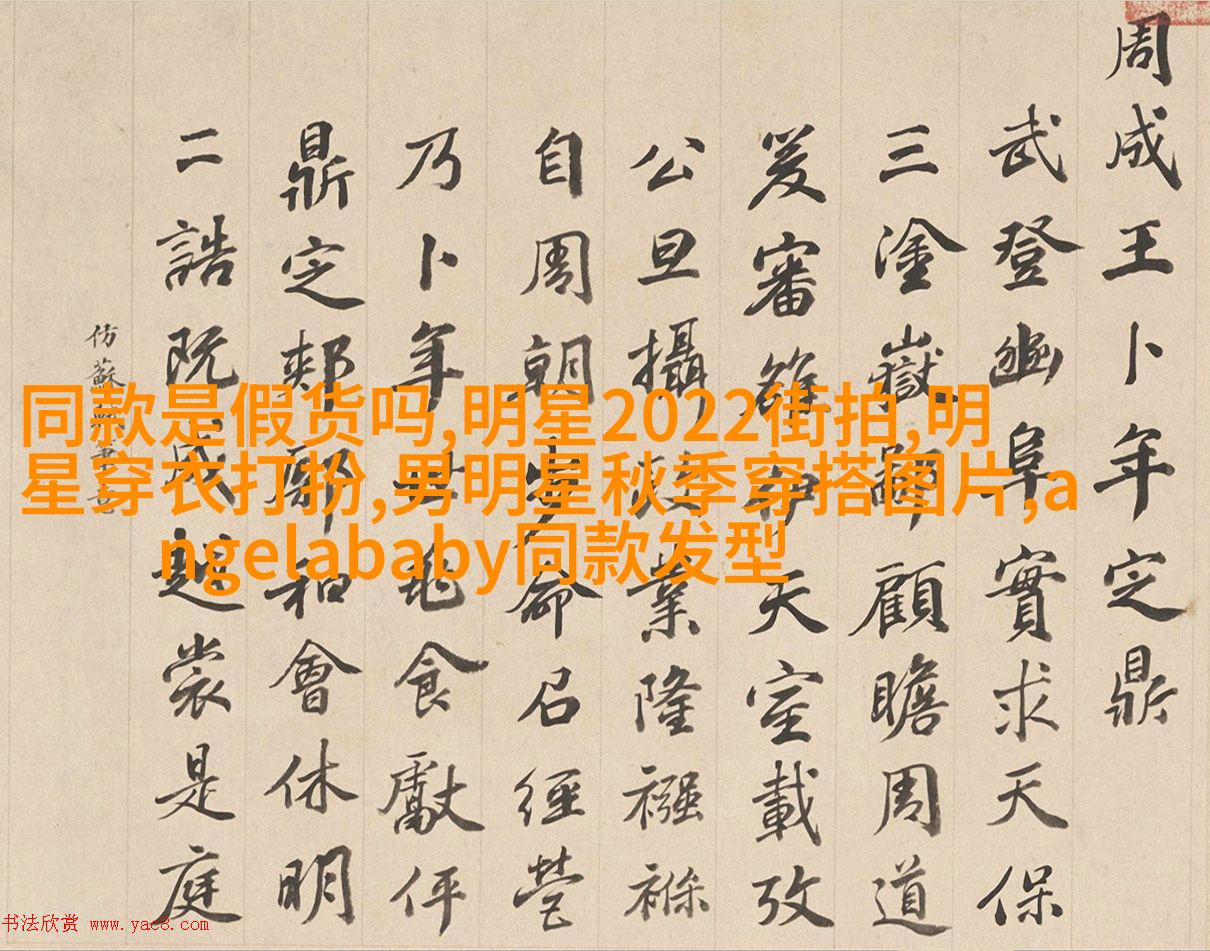 周成王卜年定鼎
武登阜實求天保
三塗嶽鄙顧瞻周道
爰審雒伊天室載攷
公旦攝業隆襁褓
自周朝步命召經營
乃卜年龜食獻伻
鼎定郟和會休明
二誥既成越裳是庭
仿蘇
同款是假货吗,明星2022街拍,明
星穿衣打扮,男明星秋季穿搭图片,a
ngelababy同款发型
书法欣赏 www.yac8.com